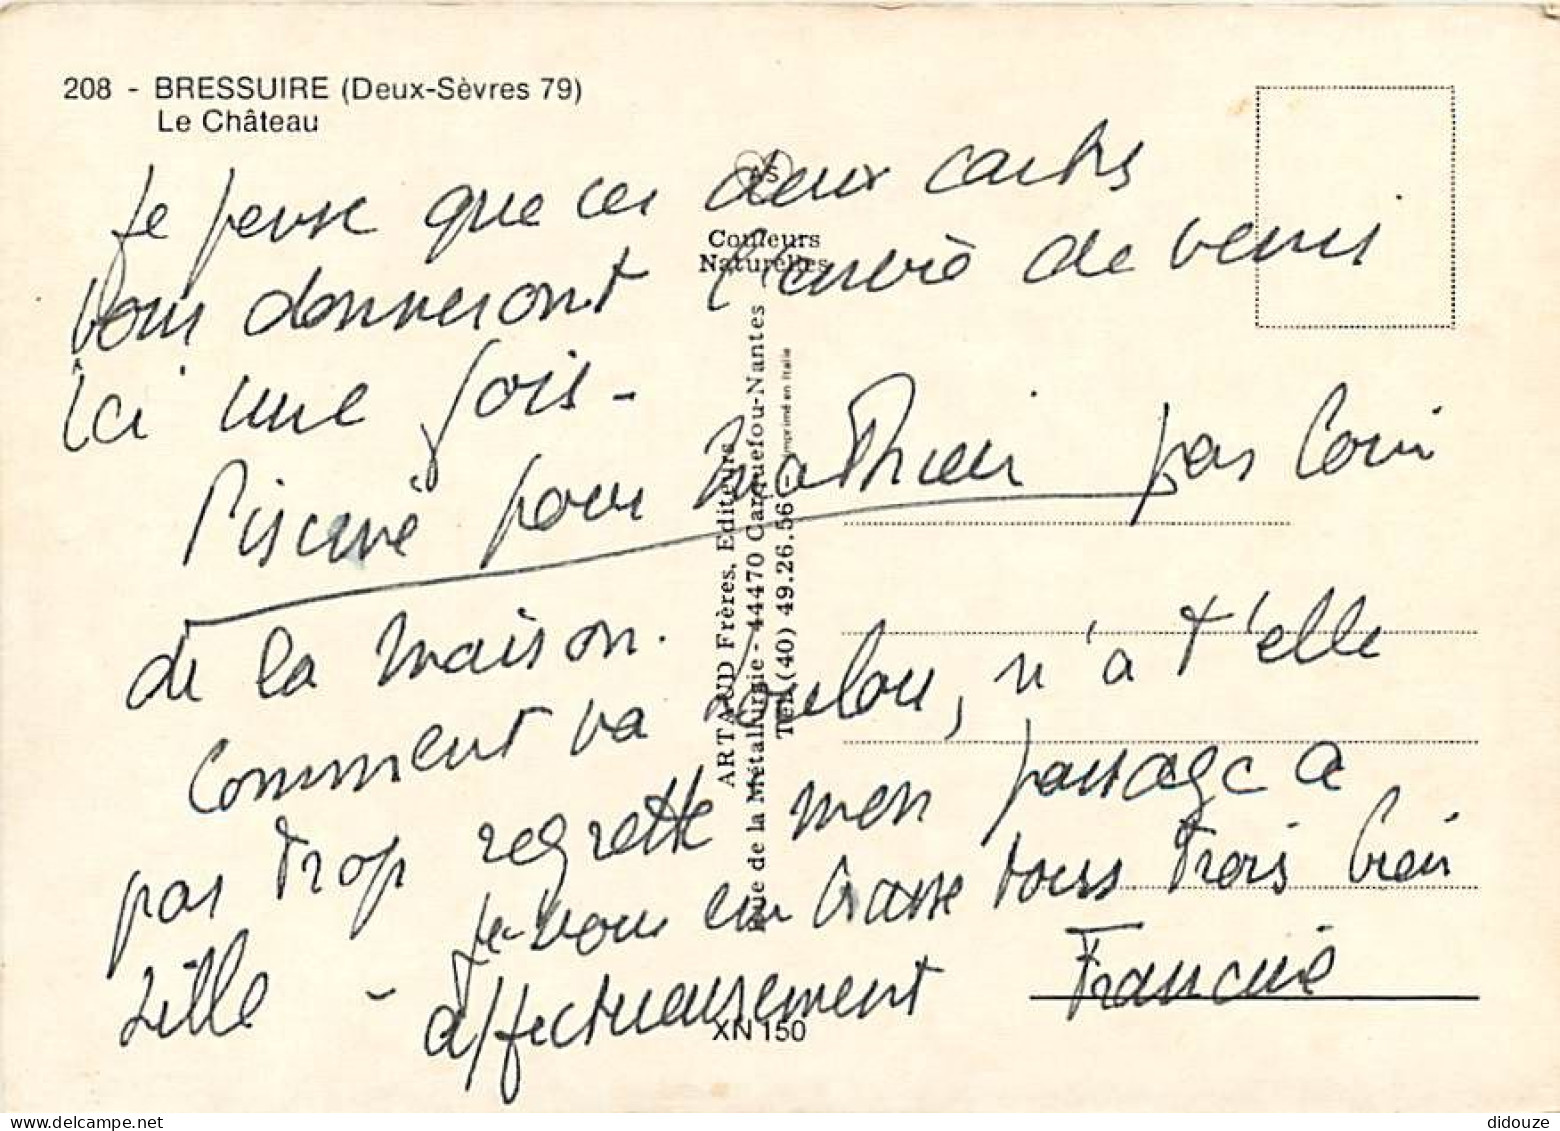 208 - BRESSUIRE (Deux-Sèvres 79)
Le Château
Je pense que ces deux cartes
vous donneront l'envie de venir
ici une fois -
Piscine pour Mathieu pas loin
de la maison.
Comment va Loulou, n'a t'elle
pas trop regretté mon passage a
Lille - Je vous embrasse tous trois bien
affectueusement Francine
Couleurs
Naturelles
ARTAUD Frères, Editeurs
Rue de la Métallurgie - 44470 Carquefou-Nantes
Tél. (40) 49.26.56 - Imprimé en Italie
XN 150
didouze